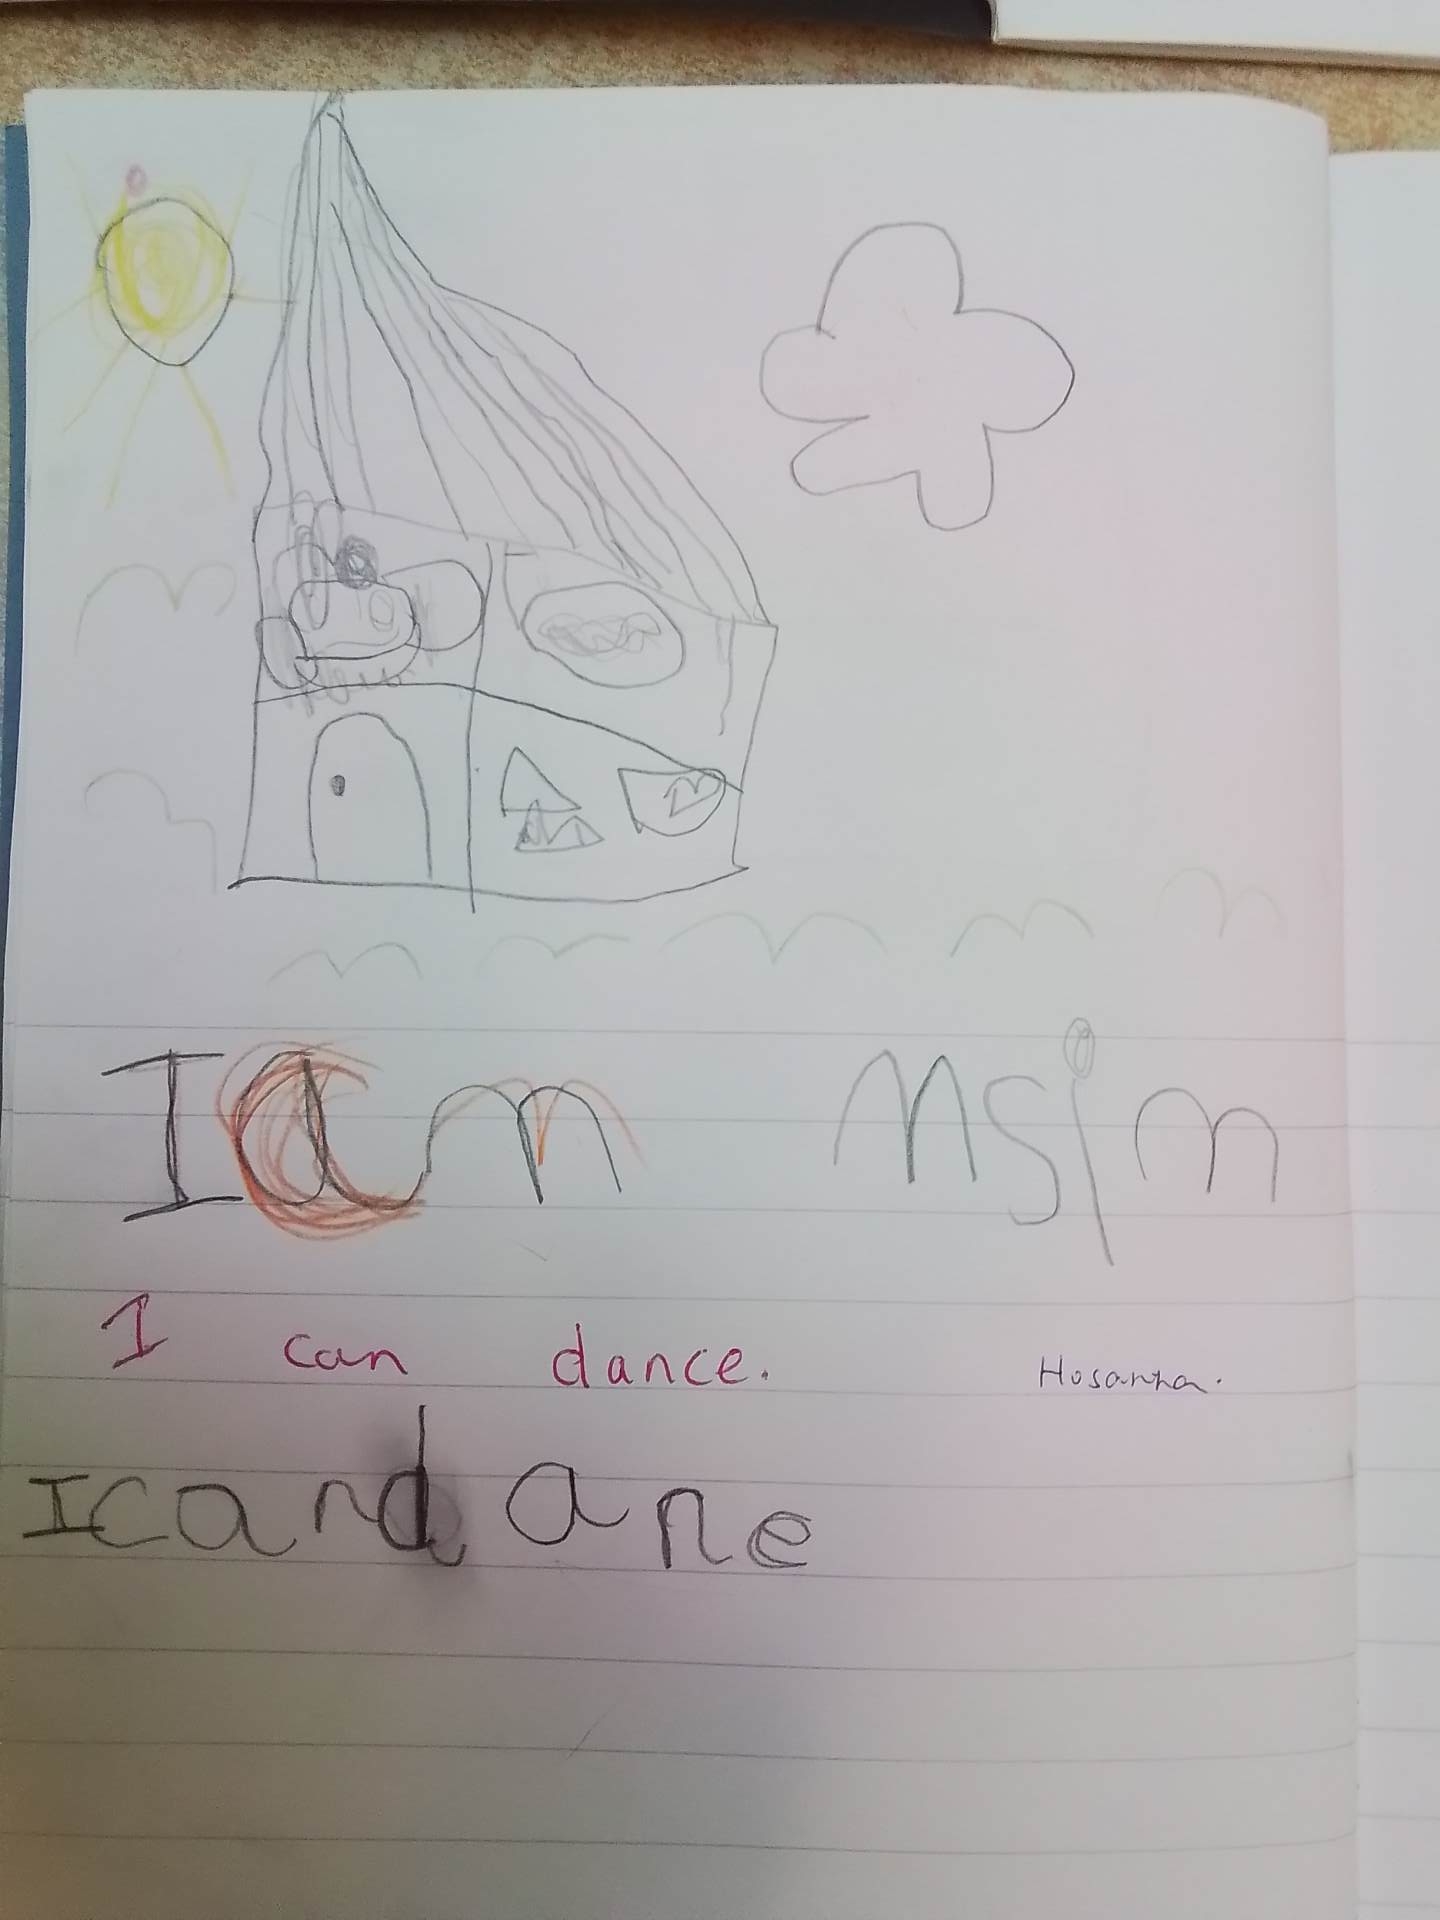 I am nsim
I can dance. Hosanna.
I can d ane